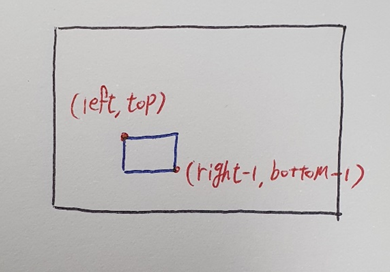 (left, top)
(right-1, bottom-1)